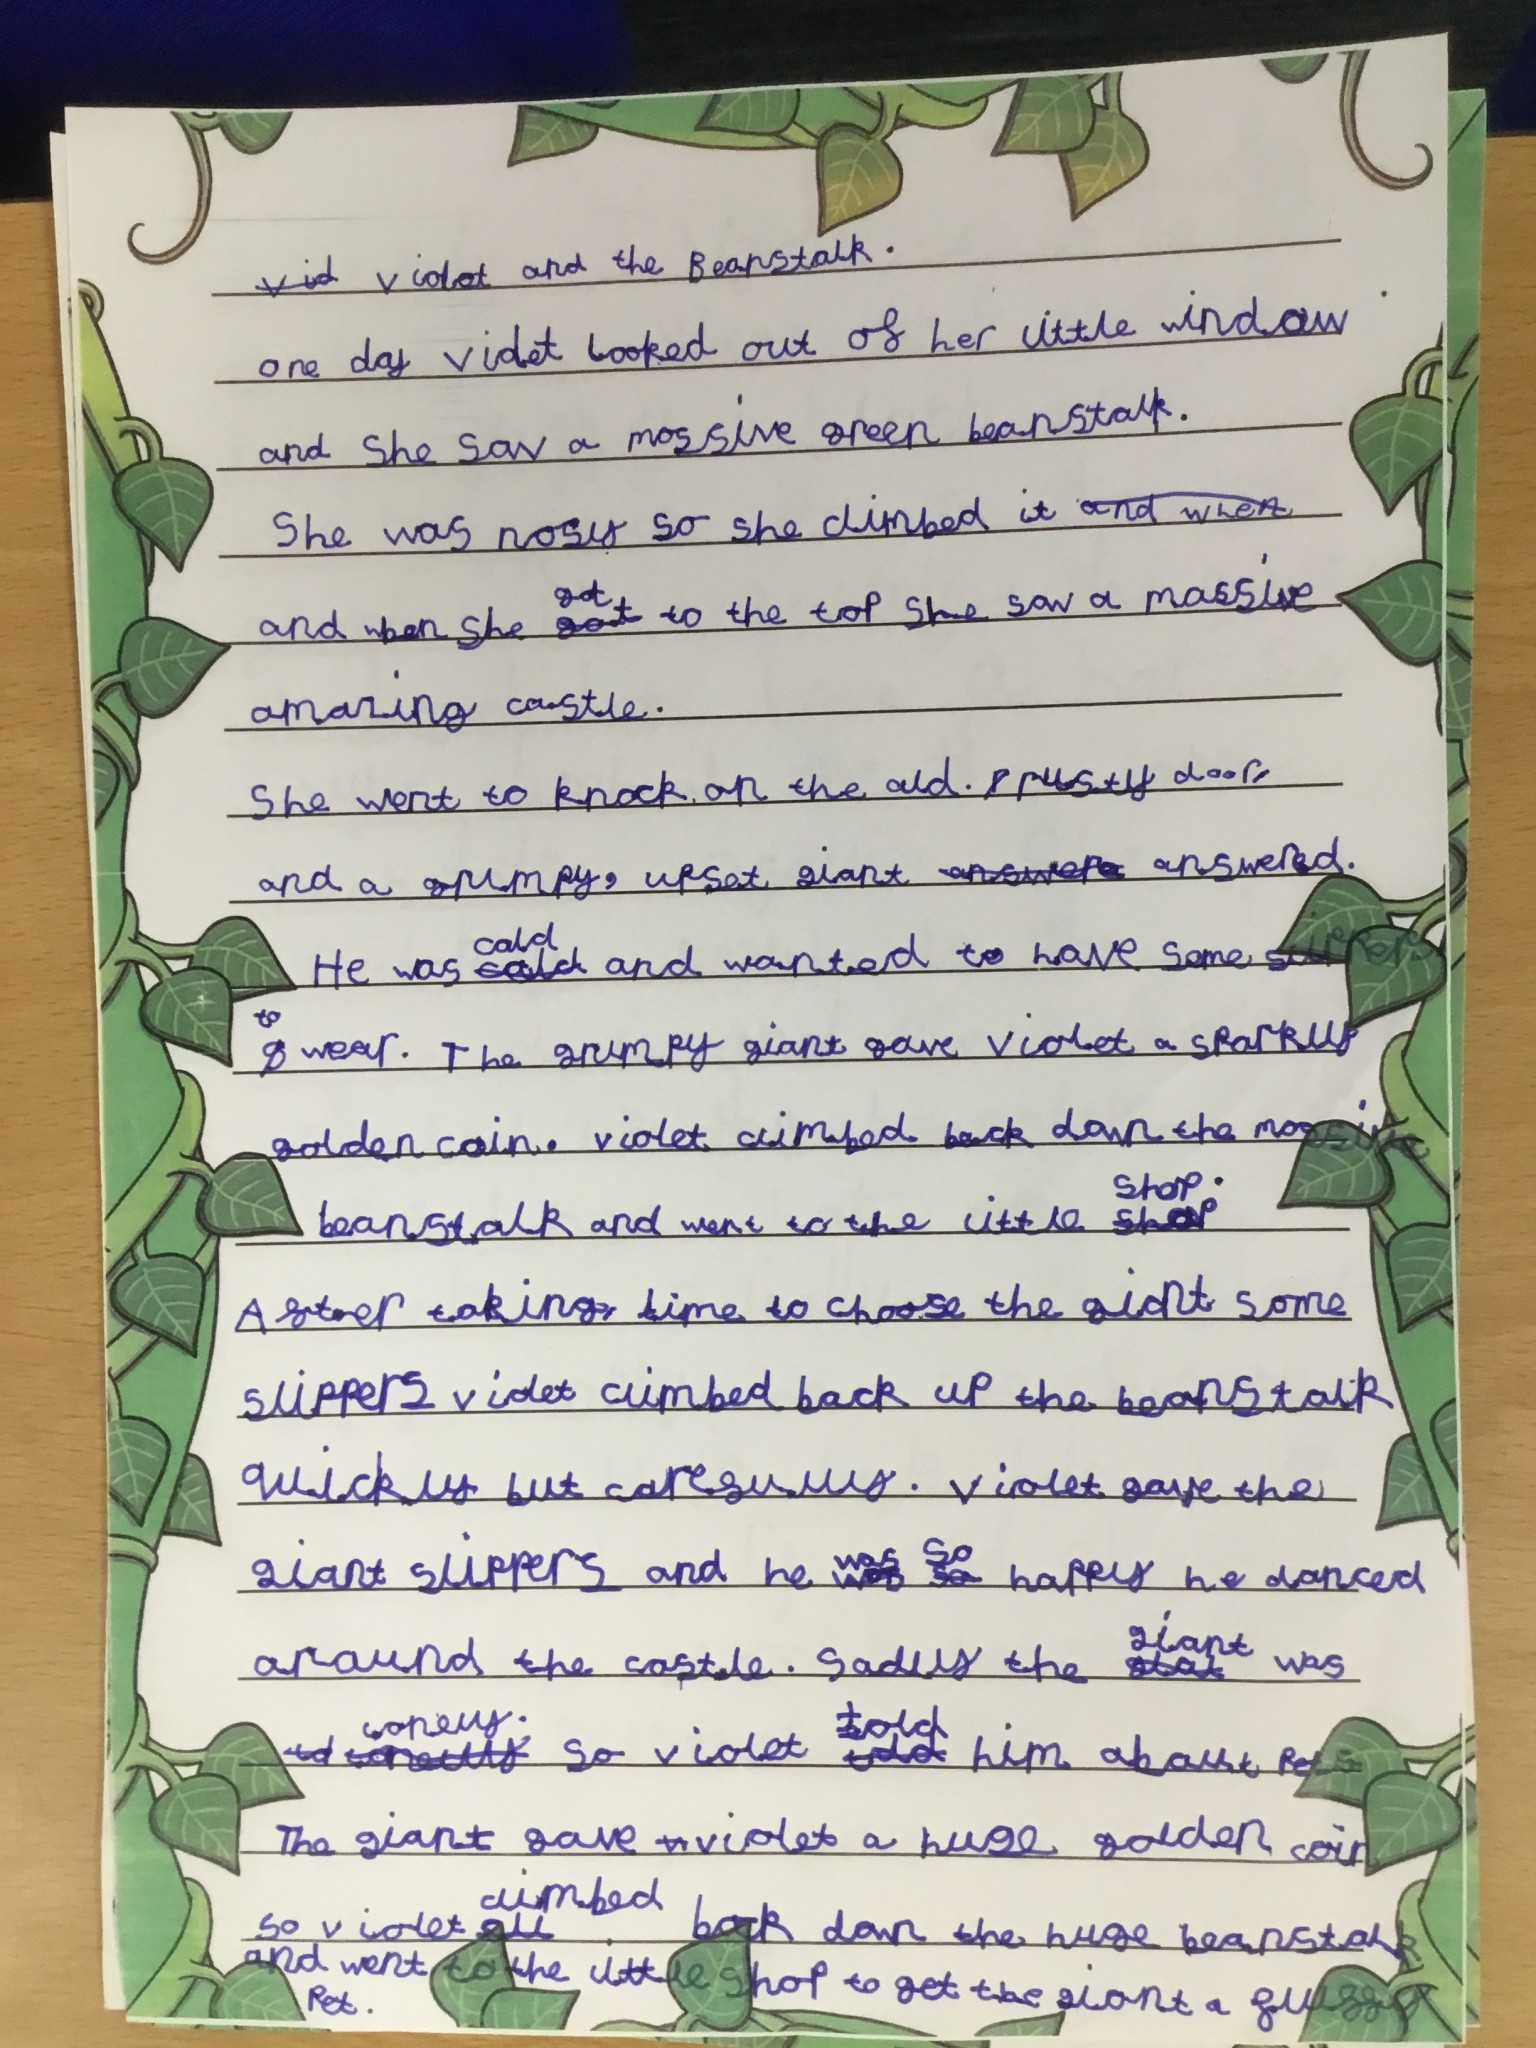 vid violet and the Beanstalk.
one day violet looked out of her little window
and she saw a massive green beanstalk.
She was nosy so she climbed it and when
and when she got got to the top she saw a massive
amazing castle.
She went to knock on the old. rusty door
and a grumpy, upset giant answere answered.
He was cold cold and wanted to have some slippers
to wear. The grumpy giant gave violet a sparkly
golden coin. violet climbed back down the massive
beanstalk and went to the little shop shop.
After taking time to choose the giant some
slippers violet climbed back up the beanstalk
quickly but carefully. violet gave the
giant slippers and he was was so so happy he danced
around the castle. Sadly the giant was
lonely. so violet told told him about pets
The giant gave violet a huge golden coin
so violet climbed back down the huge beanstalk
and went to the little shop to get the giant a fluffy
pet.